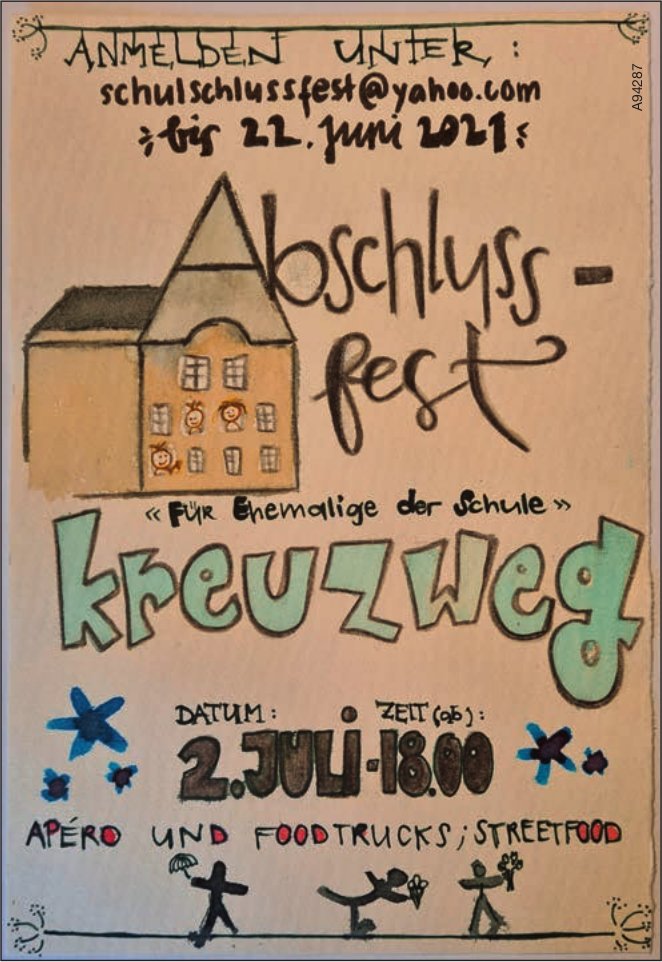 ANMELDEN UNTER:
schulschlussfest@yahoo.com
bis 22. Juni 2021
A94287
Abschluss-
fest
«FÜR Ehemalige der Schule»
kreuzweg
DATUM: ZEIT (ab):
2. JULI - 18.00
APÉRO UND FOODTRUCKS; STREETFOOD